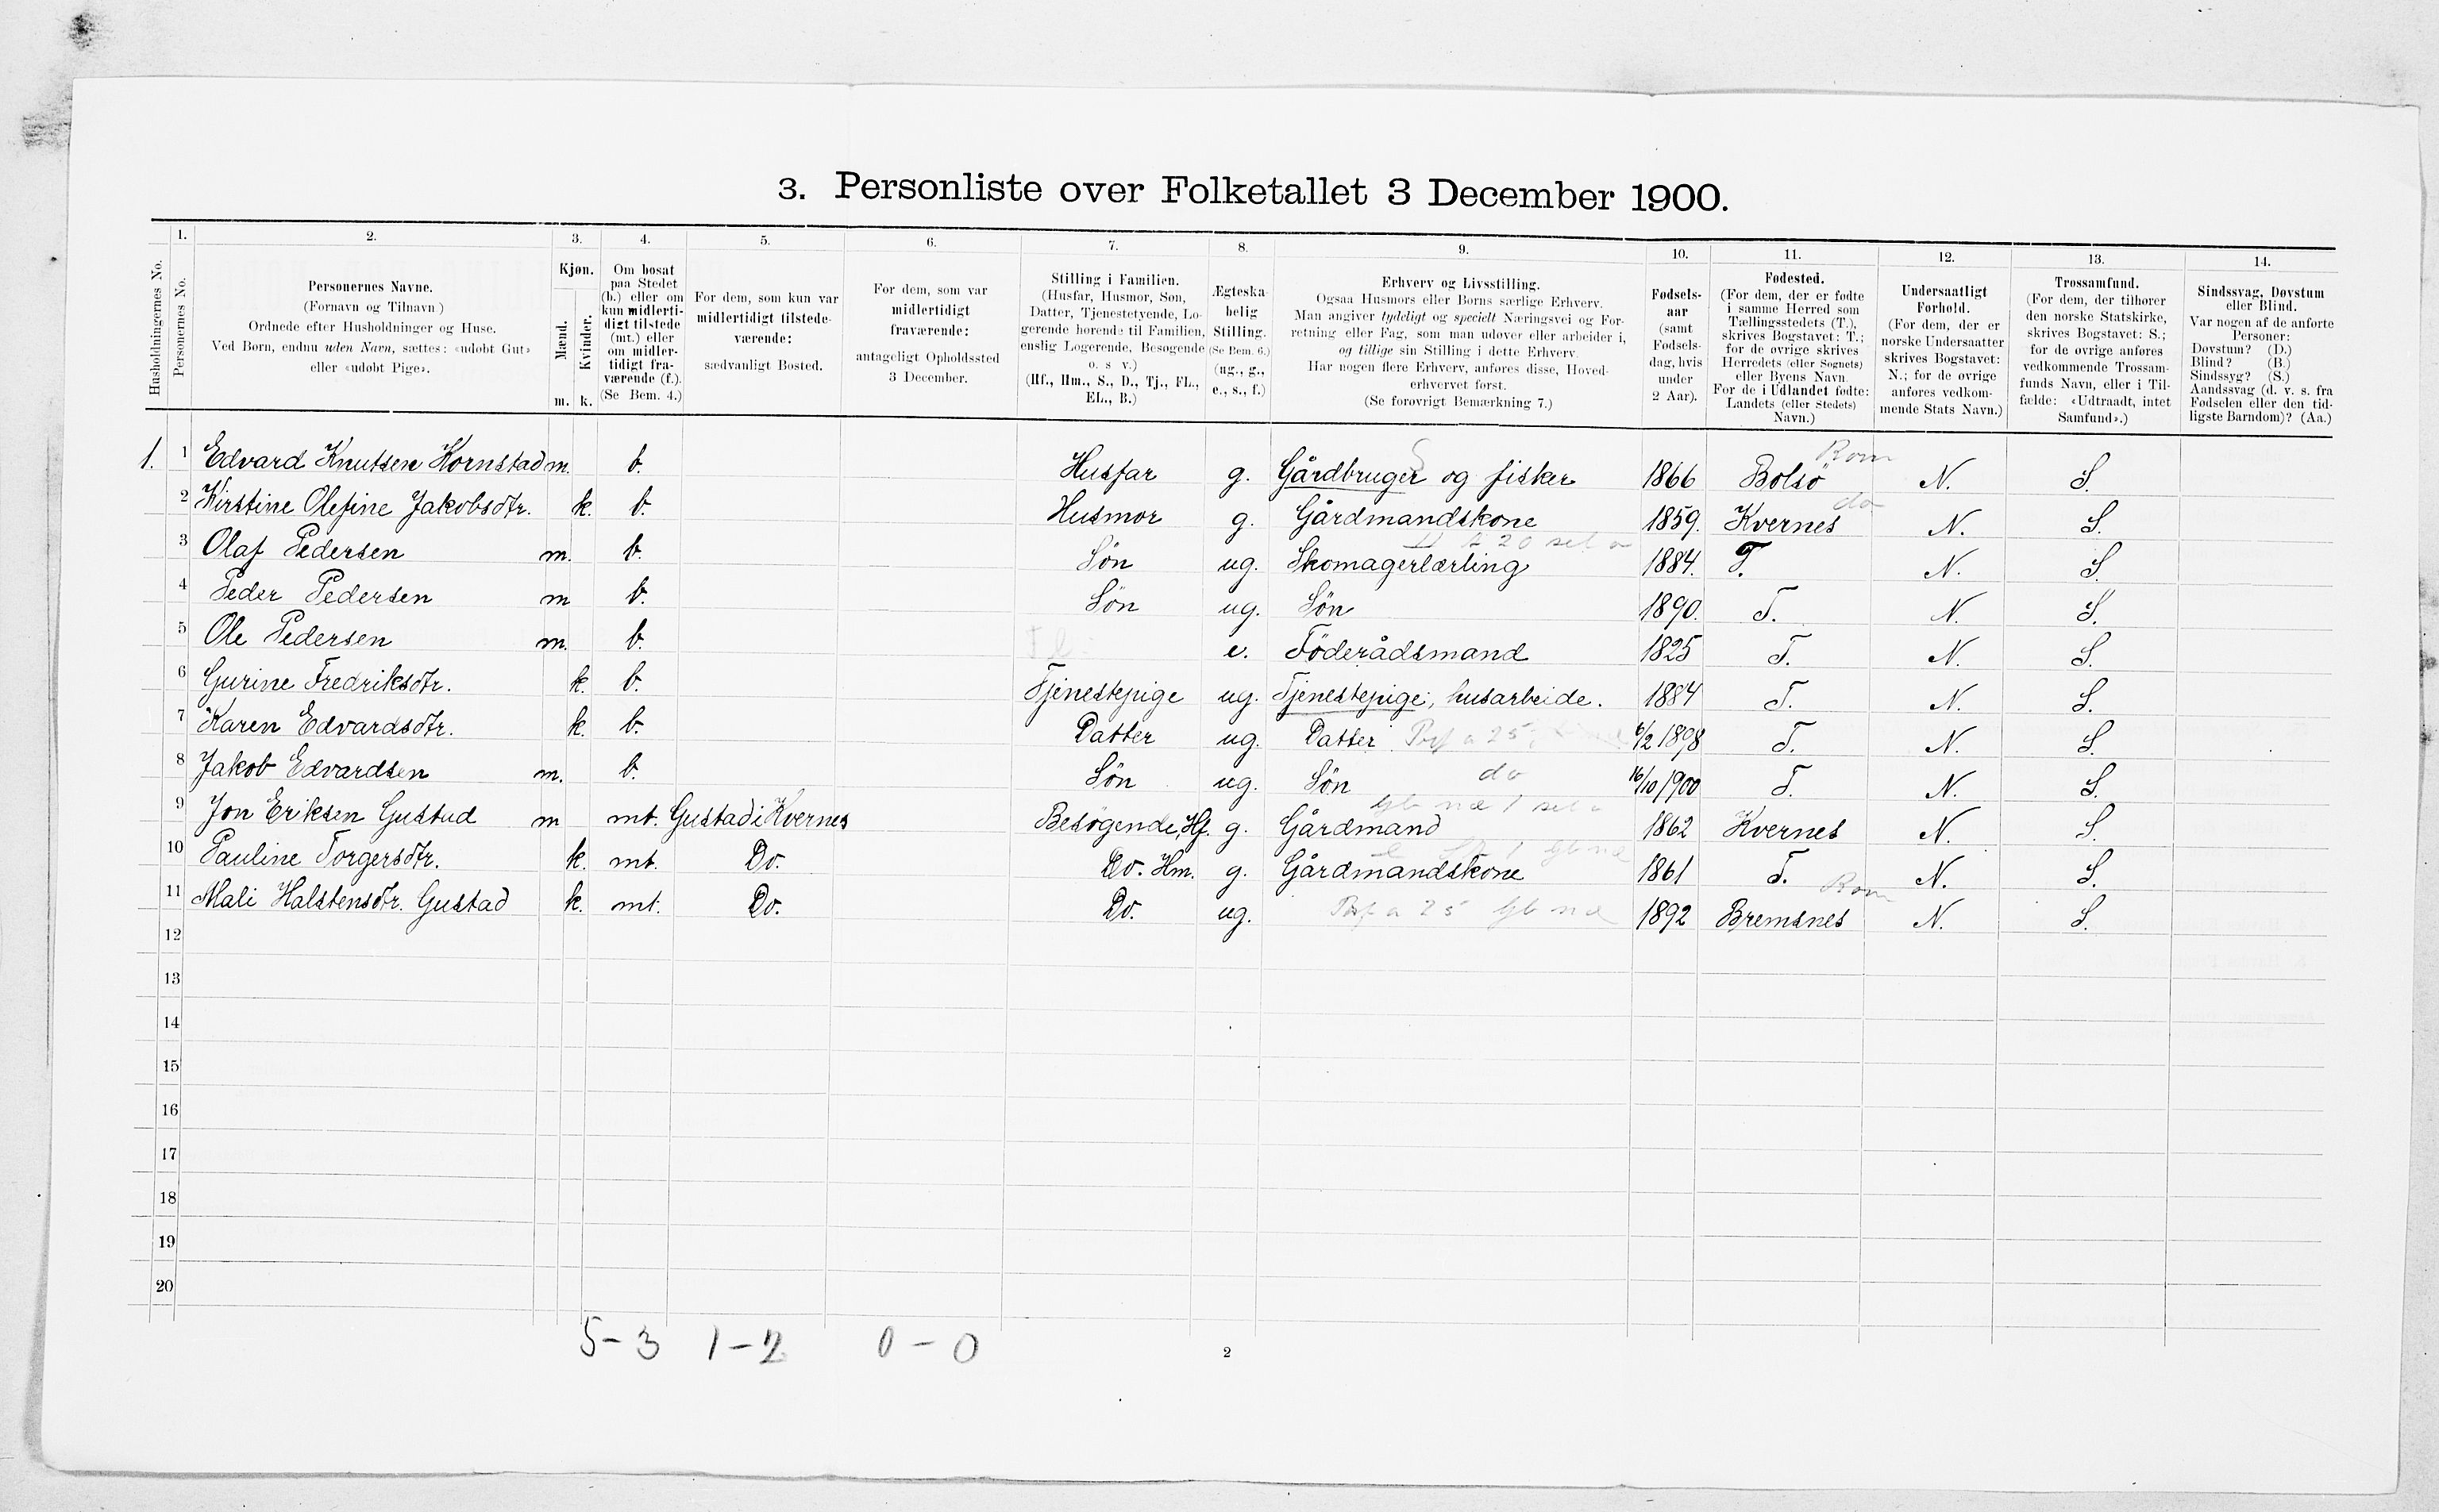 3. Personliste over Folketallet 3 December 1900.
1. 2. 3. 4. 5. 6. 7. 8. 9. 10. 11. 12. 13. 14.
Husholdningernes No.
Personernes No.
Personernes Navne.
(Fornavn og Tilnavn)
Ordnede efter Husholdninger og Huse.
Ved Børn, endnu uden Navn, sættes: «udøbt Gut»
eller «udøbt Pige».
Kjøn.
Mænd.
Kvinder.
m. k.
Om bosat
paa Stedet
(b.) eller om
kun midlerti-
digt tilstede
(mt.) eller
om midler-
tidigt fra-
værende (f.).
(Se Bem. 4.)
For dem, som kun var
midlertidigt tilstede-
værende:
sædvanligt Bosted.
For dem, som var
midlertidigt
fraværende:
antageligt Opholdssted
3 December.
Stilling i Familien.
(Husfar, Husmor, Søn,
Datter, Tjenestetyende, Lo-
gerende hørende til Familien,
enslig Logerende, Besøgende
o. s v.)
(Hf., Hm., S., D., Tj., FL.,
EL., B.)
Ægteska-
belig
Stilling.
(Se Bem. 6.)
(ug., g.,
e., s., f.)
Erhverv og Livsstilling.
Ogsaa Husmors eller Børns særlige Erhverv.
Man angiver tydeligt og specielt Næringsvei og For-
retning eller Fag, som man udøver eller arbeider i,
og tillige sin Stilling i dette Erhverv.
Har nogen flere Erhverv, anføres disse, Hoved-
erhvervet først.
(Se forøvrigt Bemærkning 7.)
Fødsels-
aar
(samt
Fødsels-
dag, hvis
under
2 Aar).
Fødested.
(For dem, der er fødte
i samme Herred som
Tællingsstedets (T.),
skrives Bogstavet: T.;
for de øvrige skrives
Herredets (eller Sognets)
eller Byens Navn.
For de i Udlandet fødte:
Landets (eller Stedets)
Navn.)
Undersaatligt
Forhold.
(For dem, der er
norske Undersaatter
skrives Bogstavet:
N.; for de øvrige
anføres vedkom-
mende Stats Navn.)
Trossamfund.
(For dem, der tilhører
den norske Statskirke,
skrives Bogstavet: S.;
for de øvrige anføres
vedkommende Trossam-
funds Navn, eller i Til-
fælde: «Udtraadt, intet
Samfund».)
Sindssvag, Døvstum
eller Blind.
Var nogen af de anførte
Personer:
Døvstum? (D.)
Blind? (B.)
Sindssyg? (S.)
Aandssvag (d. v. s. fra
Fødselen eller den tid-
ligste Barndom)? (Aa.)
1. 1 Edvard Knutsen Kornstad m. b. Husfar g. Gårdbruger og fisker 1866 Bolsö Rom N. S.
2 Kirstine Olefine Jakobsdtr. k. b. Husmor g. Gårdmandskone 1859. Kvernes do N. S.
3 Olaf Pedersen m. b. Sön ug. Skomagerlærling 1884. T. N. S.
4 Peder Pedersen m b. Sön ug. Sön 1890. T. N. S.
5 Ole Pedersen m. b. e. Föderådsmand 1825 T. N. S.
6 Gurine Fredriksdtr. k. b. Tjenestepige ug. Tjenestepige, husarbeide. 1884 T. N. S.
7 Karen Edvardsdtr. k. b. Datter ug. Datter 6/2 1898 T. N. S.
8 Jakob Edvardsen m. b. Sön ug. Sön do 16/10 1900 T. N. S.
9 Jon Eriksen Gustad m mt. Gustad i Kvernes Besögende, Hf. g. Gårdmand 1862 Kvernes N. S.
10 Pauline Torgersdtr. k. mt. Do. Do. Hm. g. Gårdmandskone 1861 T. N. S.
11 Mali Halstensdtr. Gustad k. mt. Do. Do. ug. 1892 Bremsnes Rom N. S.
12
13
14
15
16
17
18
19
20
5-3 1-2 0-0
2